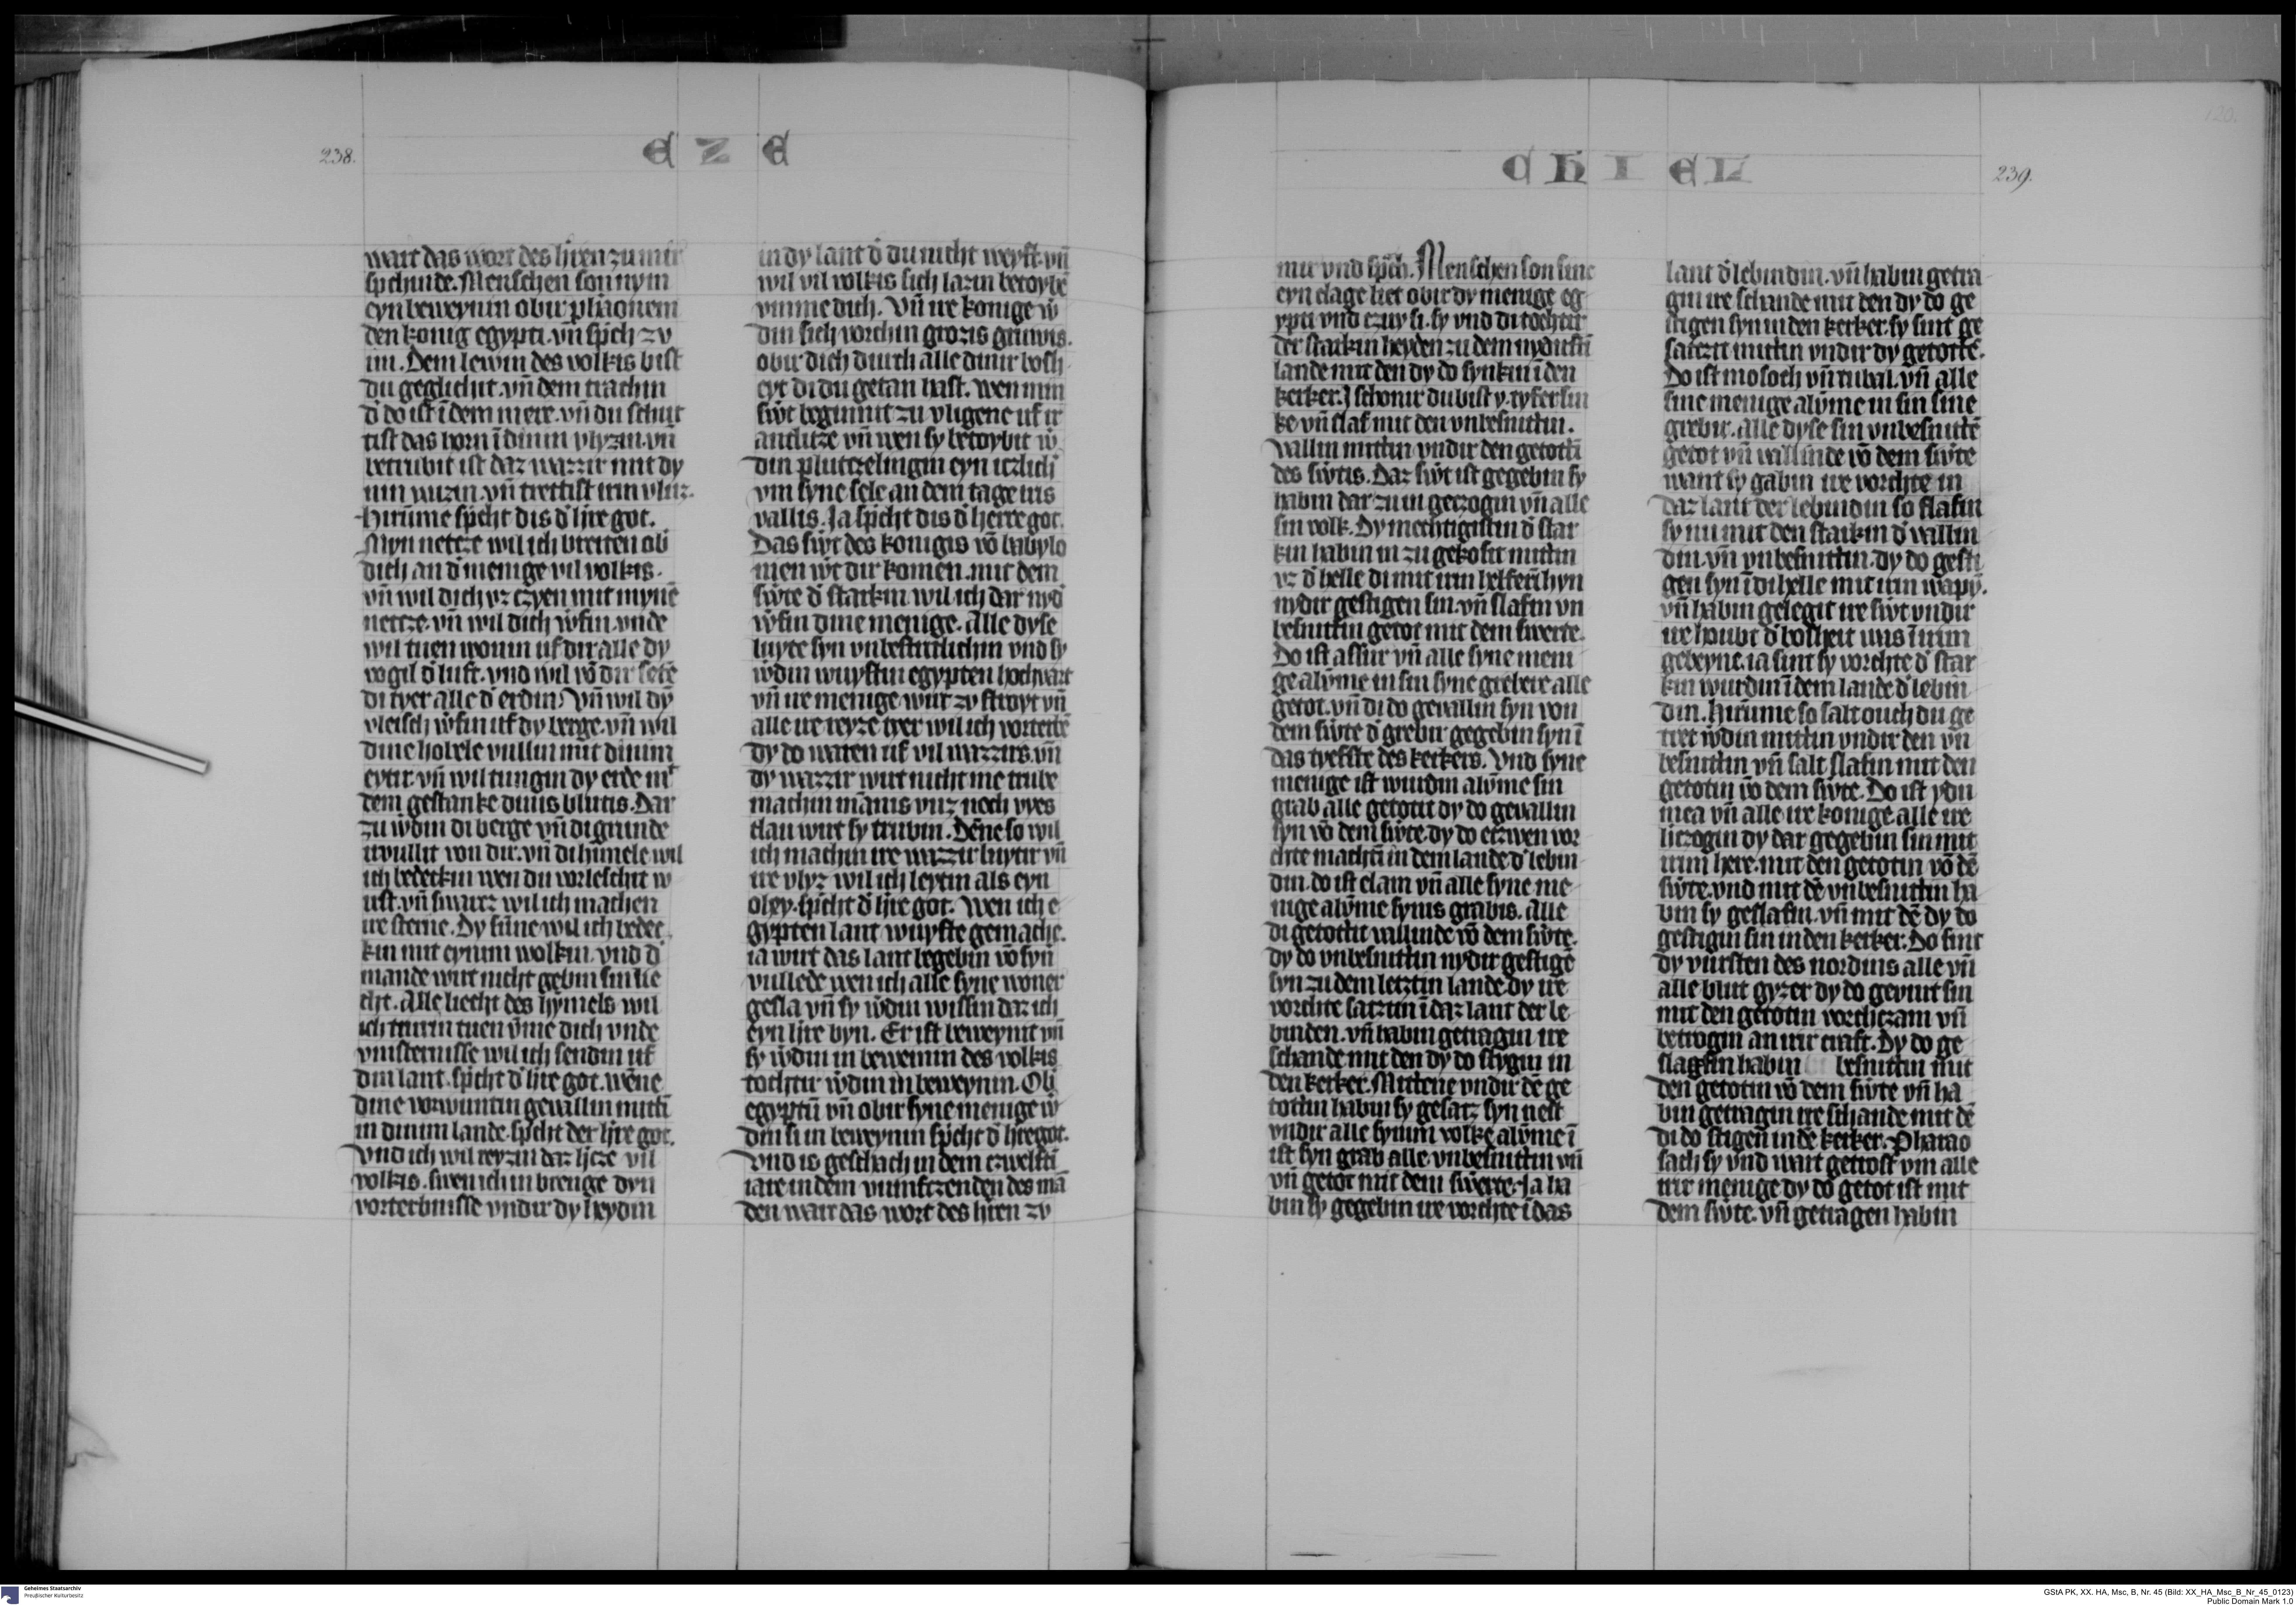 238.
E Z E
wart das wort des h̄ren zu mir
sp̄chinde. Menschen son nym
eyn beweynin obir pharonem
den konig egypti. vn̄ sp̄ch zv
im. Dem lewin des volkis bist
du geglichit. vn̄ dem trachin
d̄ do ist ī dem mere. vn̄ du schut
tist das horn ī dinin vlyzin. vn̄
betrubit ist daz wazzir mit dy
nin vuzin. vn̄ trettist irin vluz.
Hirūme sp̄cht dis d̄ h̄re got.
Myn netcze wil ich breiten ob̄
dich an d̄ menige vil volkis.
vn̄ wil dich vz czyen mit mynē
netcze. vn̄ wil dich w̄fin. vnde
wil tuen wonin uf dir alle dy
vogil d̄ luft. vnd wil vō dir setē
di tyer alle d̄ erdin. vn̄ wil dȳ
vleisch w̄fin uf dy berge. vn̄ wil
dine hobele vullin mit dinim
eytir. vn̄ wil tungin dy erde mit
dem gestanke dinis blutis. Dar
zu w̄din di berge vn̄ di grunde
irvullit von dir. vn̄ di himele wil
ich bedeckin wen du vorleschit w
irst. vn̄ swarz wil ich machen
ire sterne. Dy sūne wil ich bedec
kin mit eynim wolkin. vnd d̄
mande wirt nicht gebin sin lie
cht. Alle liecht des hymels wil
ich truren tuen v̄me dich vnde
vinsternisse wil ich sendin uf
din lant. sp̄cht d̄ h̄re got. wēne
dine vorwuntin gevallin mittī
in dinim lande. sp̄cht der h̄re got.
Vnd ich wil reyzin daz h̄cze vil
volkis. swen ich in brenge dyn
vorterbnisse vndir dy heydin
in dy lant d̄ du nicht weyst. vn̄
wil vil volkis sich lazin betoybē
vmme dich. Vn̄ ire konige w̄
din sich vorchin grozis gruwis.
obir dich durch alle dinir bosh
eyt di du getan hast. wen min
sw̄t beginnit zu vligene uf ir
antlitze vn̄ wen sy betoybit w̄
din plutczelingin eyn iczlich
vm syne sele an dem tage irs
vallis. Ja sp̄cht dis d̄ herre got.
Das sw̄t des konigis vō babylo
nien w̄t dir komen. mit dem
sw̄te d̄ starkin wil ich dar nyd̄
w̄fin dine menige. Alle dyse
luyte syn vnbestritlichin vnd sy
w̄din wuystin egypten hochvart
vn̄ ire menige wirt zv stroyt vn̄
alle ire reyze tyer wil ich vorterbē
dy do waren uf vil wazzirs. vn̄
dy wazzir wirt nicht me trube
machin mānis vuz noch vyes
clau wirt sy trubin. Dēne so wil
ich machin ire wazzir luytir vn̄
ire vlyz wil ich leytin als eyn
oley. sp̄cht d̄ h̄re got. Wen ich e
gypten lant wuyste gemache.
ia wirt das lant begebin vō syn̄
vullede wen ich alle syne woner
gesla vn̄ sy w̄din wissin daz ich
eyn h̄re byn. Er ist beweynit vn̄
sy w̄din in beweinin des volkis
tochtir w̄din in beweynin. Ob̄
egyptū vn̄ obir syne menige w̄
din si in beweynin sp̄cht d̄ h̄re got.
Vnd is geschach in dem czwelftī
iare in dem vumfczenden des mā
den wart das wort des h̄ren zv
120.
C H I E L
239.
mir vnd sp̄ch. Menschen son sinc
eyn clage liet obir dy menige eg
ypti vnd czuy si. sy vnd di tochtir
der starkin heyden zu dem nydirstī
lande mit den dy do synkin ī den
kerker. J schonir du bist v. tyfer sin
ke vn̄ slaf mit den vnbesnittin.
Vallin mittin vndir den getottī
des sw̄tis. Daz sw̄t ist gegebin sy
habin dar zu in geczogin vn̄ alle
sin volk. Dy mechtigistin d̄ star
kin habin in zu gekosit mittin
vz d̄ helle di mit irin helferī hyn
nydir gestigen sin. vn̄ slafin vn
besnittin getot mit dem swerte.
Do ist assur vn̄ alle syne meni
ge alv̄me in sin syne grebere alle
getot. vn̄ di do gevallin syn von
dem sw̄te d̄ grebir gegebin syn ī
das tyefste des kerkers. Vnd syne
menige ist wurdin alv̄me sin
grab alle getotit dy do gevallin
syn vō dem sw̄te. dy do etzwen vor
chte machtī in dem lande d̄ lebin
din. do ist elam vn̄ alle syne me
nige alv̄me synis grabis. alle
di getottit vallinde vō dem sw̄te.
dy do vnbesnittin nydir gestigē
syn zu dem letztin lande. dy ire
vorchte satztin ī daz lant der le
binden. vn̄ habin getragin ire
schande mit den dy do stygin in
den kerker. Mittene vndir dē ge
tottin habin sy gesatz syn nest
vndir alle synim volke alv̄me ī
ist syn grab alle vnbesnittin vn̄
vn̄ getot mit dem swerte. Ja ha
bin sy gegebin ire vorchte ī das
lant d̄ lebindin. vn̄ habin getra
gin ire schande mit den dy do ge
stigen syn in den kerker. sy sint ge
satczt mittin vndir dy getottē.
Do ist mosoch vn̄ tubal. vn̄ alle
sine menige alv̄me in sin sine
grebir. alle dyse sin vnbesnittē
getot vn̄ vallinde vō dem sw̄te
want sy gabin ire vorchte in
daz lant der lebindin so slafin
sy nu mit den starkin d̄ vallin
din. vn̄ vnbesnittin. dy do gesti
gen syn ī di helle mit irin wapȳ.
vn̄ habin gelegit ire swt vndir
ire houbt d̄ bosheit uns ī irim
gebeyne. ia sint sy vorchte d̄ star
kin wurdin ī dem lande d̄ lebin
din. Hirūme so salt ouch du ge
tret w̄din mittin vndir den vn
besnittin vn̄ salt slafin mit den
getotin vō dem sw̄te. Do ist ydu
mea vn̄ alle ire konige alle ire
h̄czogin dy dar gegebin sin mit
irim here. mit den getotin vō dē
sw̄te. vnd mit dē vnbesnittin ha
bin sy geslafin. vn̄ mit dē dy do
gestigin sin in den kerker. Do sint
dy vursten des nordins alle vn̄
alle
mit den getotin vorchczam vn̄
betrogin an irir craft. Dy do ge
slaffin habin besnittin mit
den getotin vō dem sw̄te vn̄ ha
bin getragin ire schande mit dē
di do stigen in dē kerker. Pharao
sach sy vnd wart getrost vm alle
irir menige dy do getot ist mit
dem sw̄te. vn̄ getragen habin
Geheimes Staatsarchiv
Preußischer Kulturbesitz
GStA PK, XX. HA, Msc, B, Nr. 45 (Bild: XX_HA_Msc_B_Nr_45_0123)
Public Domain Mark 1.0